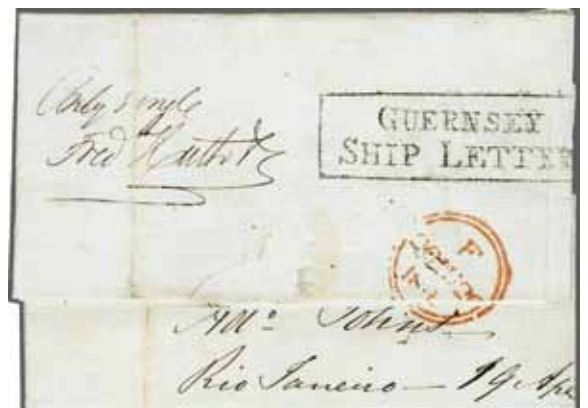 Only single
Fred Huth
GUERNSEY
SHIP LETTER
F
Johns
Rio Janeiro — 19 Apr